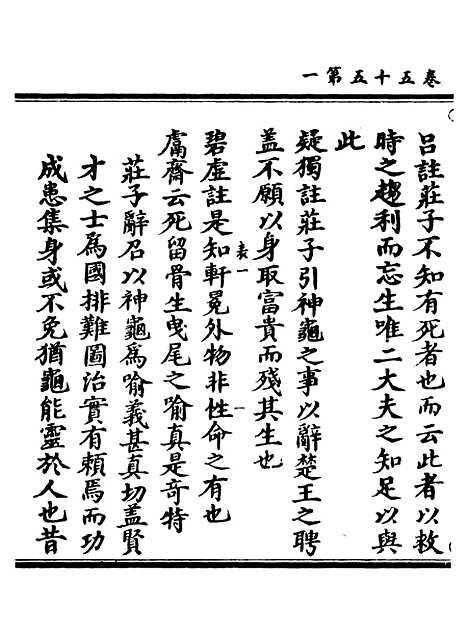 卷五十五第一
呂註莊子不知有死者也而云此者以救
時之趨利而忘生唯二大夫之知足以與
此
疑獨註莊子引神龜之事以辭楚王之聘
蓋不願以身取富貴而殘其生也
表一
一
碧虛註是知軒冕外物非性命之有也
鬳齋云死留骨生曳尾之喻真是奇特
莊子辭召以神龜爲喻義甚真切蓋賢
才之士爲國排難圖治實有賴焉而功
成患集身或不免猶龜能靈於人也昔